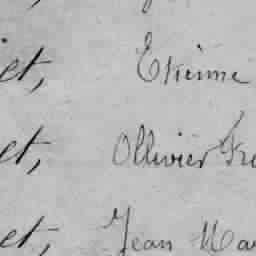 et, Etienne
et, Ollivier
et, Jean